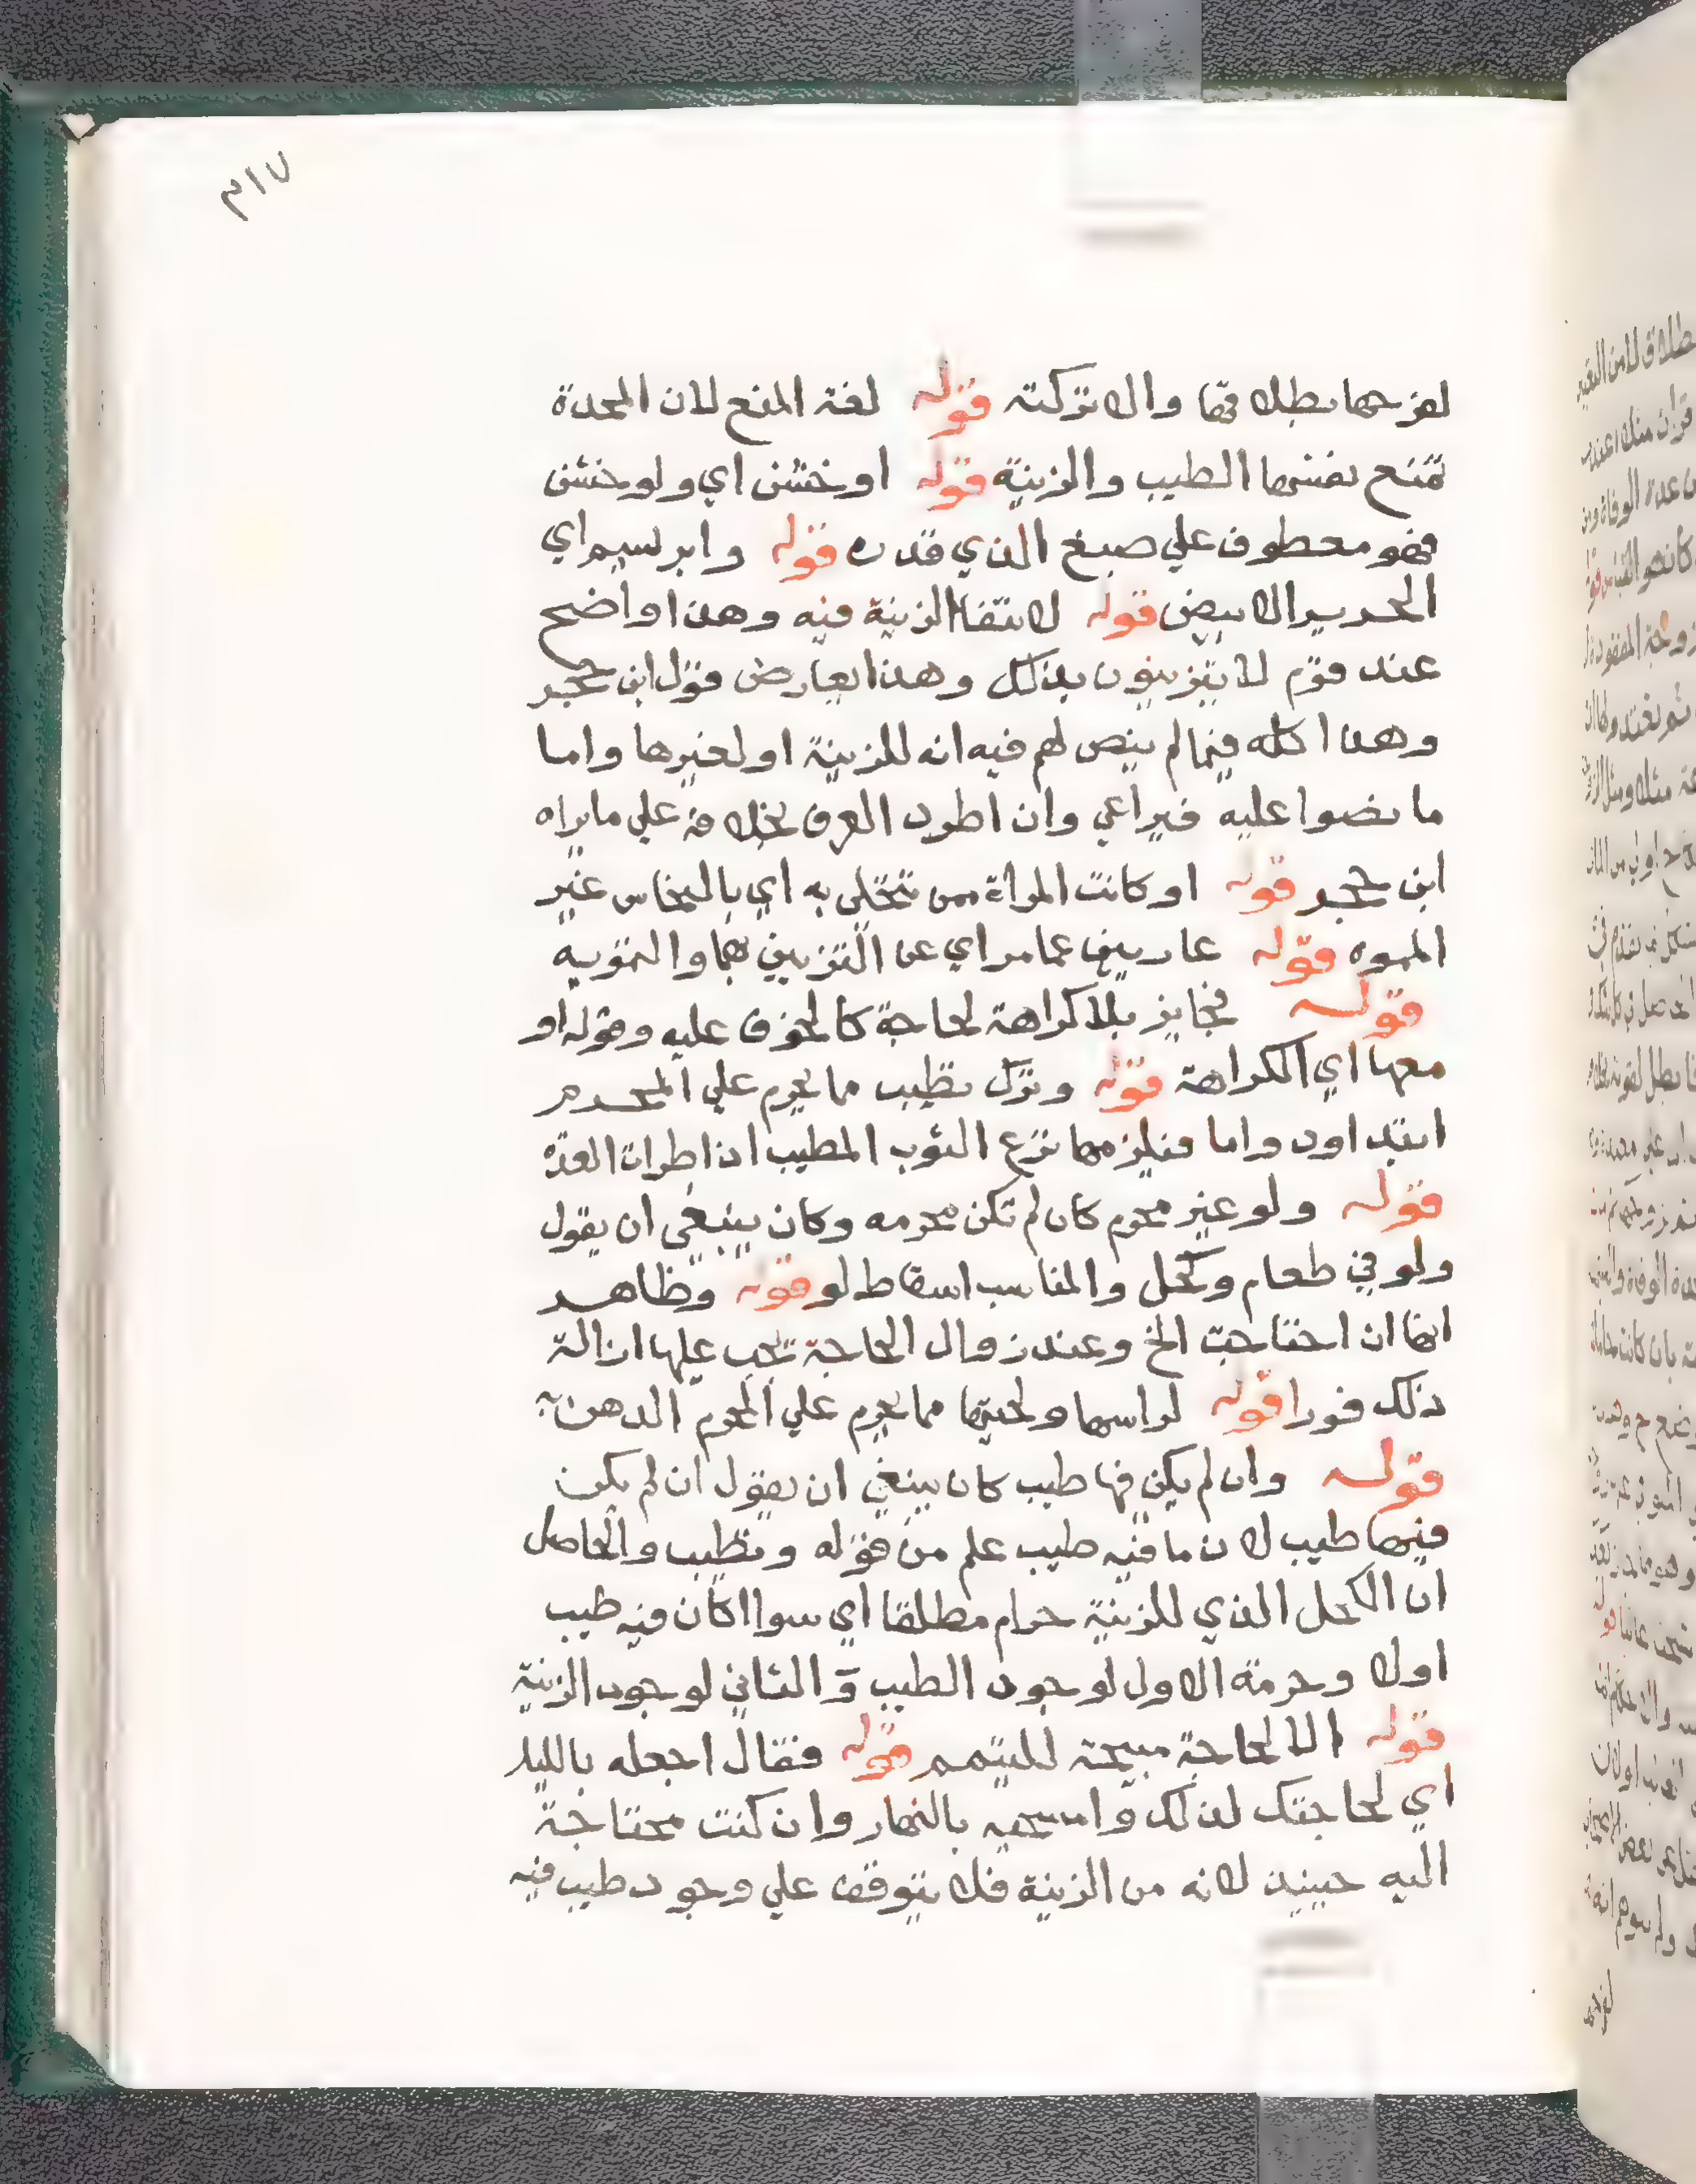 ٣١٧
لغرحها بطلاقها والا تركته قوله لغة المنع لان المحدة
تمنع نفسها الطيب والزينة قوله او خشن اي ولو خشن
فهو معطوف علي صبغ الذي قدره قوله وابرسيم اي
الحرير الابيض قوله لانتفا الزينة فيه وهذا واضح
عند قوم لا يتزينون بذلك وهذا يعارض قول ابن حجر
وهذا كله فيما لم ينص لهم فيه انه للزينة او لغيرها واما
ما نصوا عليه فيراعي وان اطرد العرف بخلافه علي ما يراه
ابن حجر قوله او كانت المراة ممن تتحلي به اي بالنحاس غير
المموه قوله عاريين عما مر اي عن التزيين بهما والتمويه
قوله فجايز بلا كراهة لحاجة كالخوف عليه وقوله او
معها اي الكراهة قوله وترك تطيب مما يحرم علي المحرم
ابتدا ودواما فيلزمها نزع الثوب المطيب اذا طرات العدة
قوله ولو غير محرم كان لم تكن محرمه وكان ينبغي ان يقول
ولو في طعام وكحل والمناسب اسقاط لو قوله وظاهر
انها ان احتاجت الخ وعند زوال الحاجة تجب عليها ازالة
ذلك فورا قوله لراسها ولحيتها مما يحرم علي المحرم الدهن به
قوله وان لم يكن فيها طيب كان ينبغي ان يقول ان لم يكن
فيها طيب لان ما فيه طيب علم من قوله وتطيب والحاصل
ان الكحل الذي للزينة حرام مطلقا اي سواا كان فيه طيب
اولا وحرمة الاول لوجود الطيب والثاني لوجود الزينة
قوله الا لحاجة مبيحة للتيمم قوله فقال اجعله بالليل
اي لحاجتك لذلك وامسحيه بالنهار وان كنت محتاجة
اليه حينيذ لانه من الزينة فلا يتوقف علي وجود طيب فيه